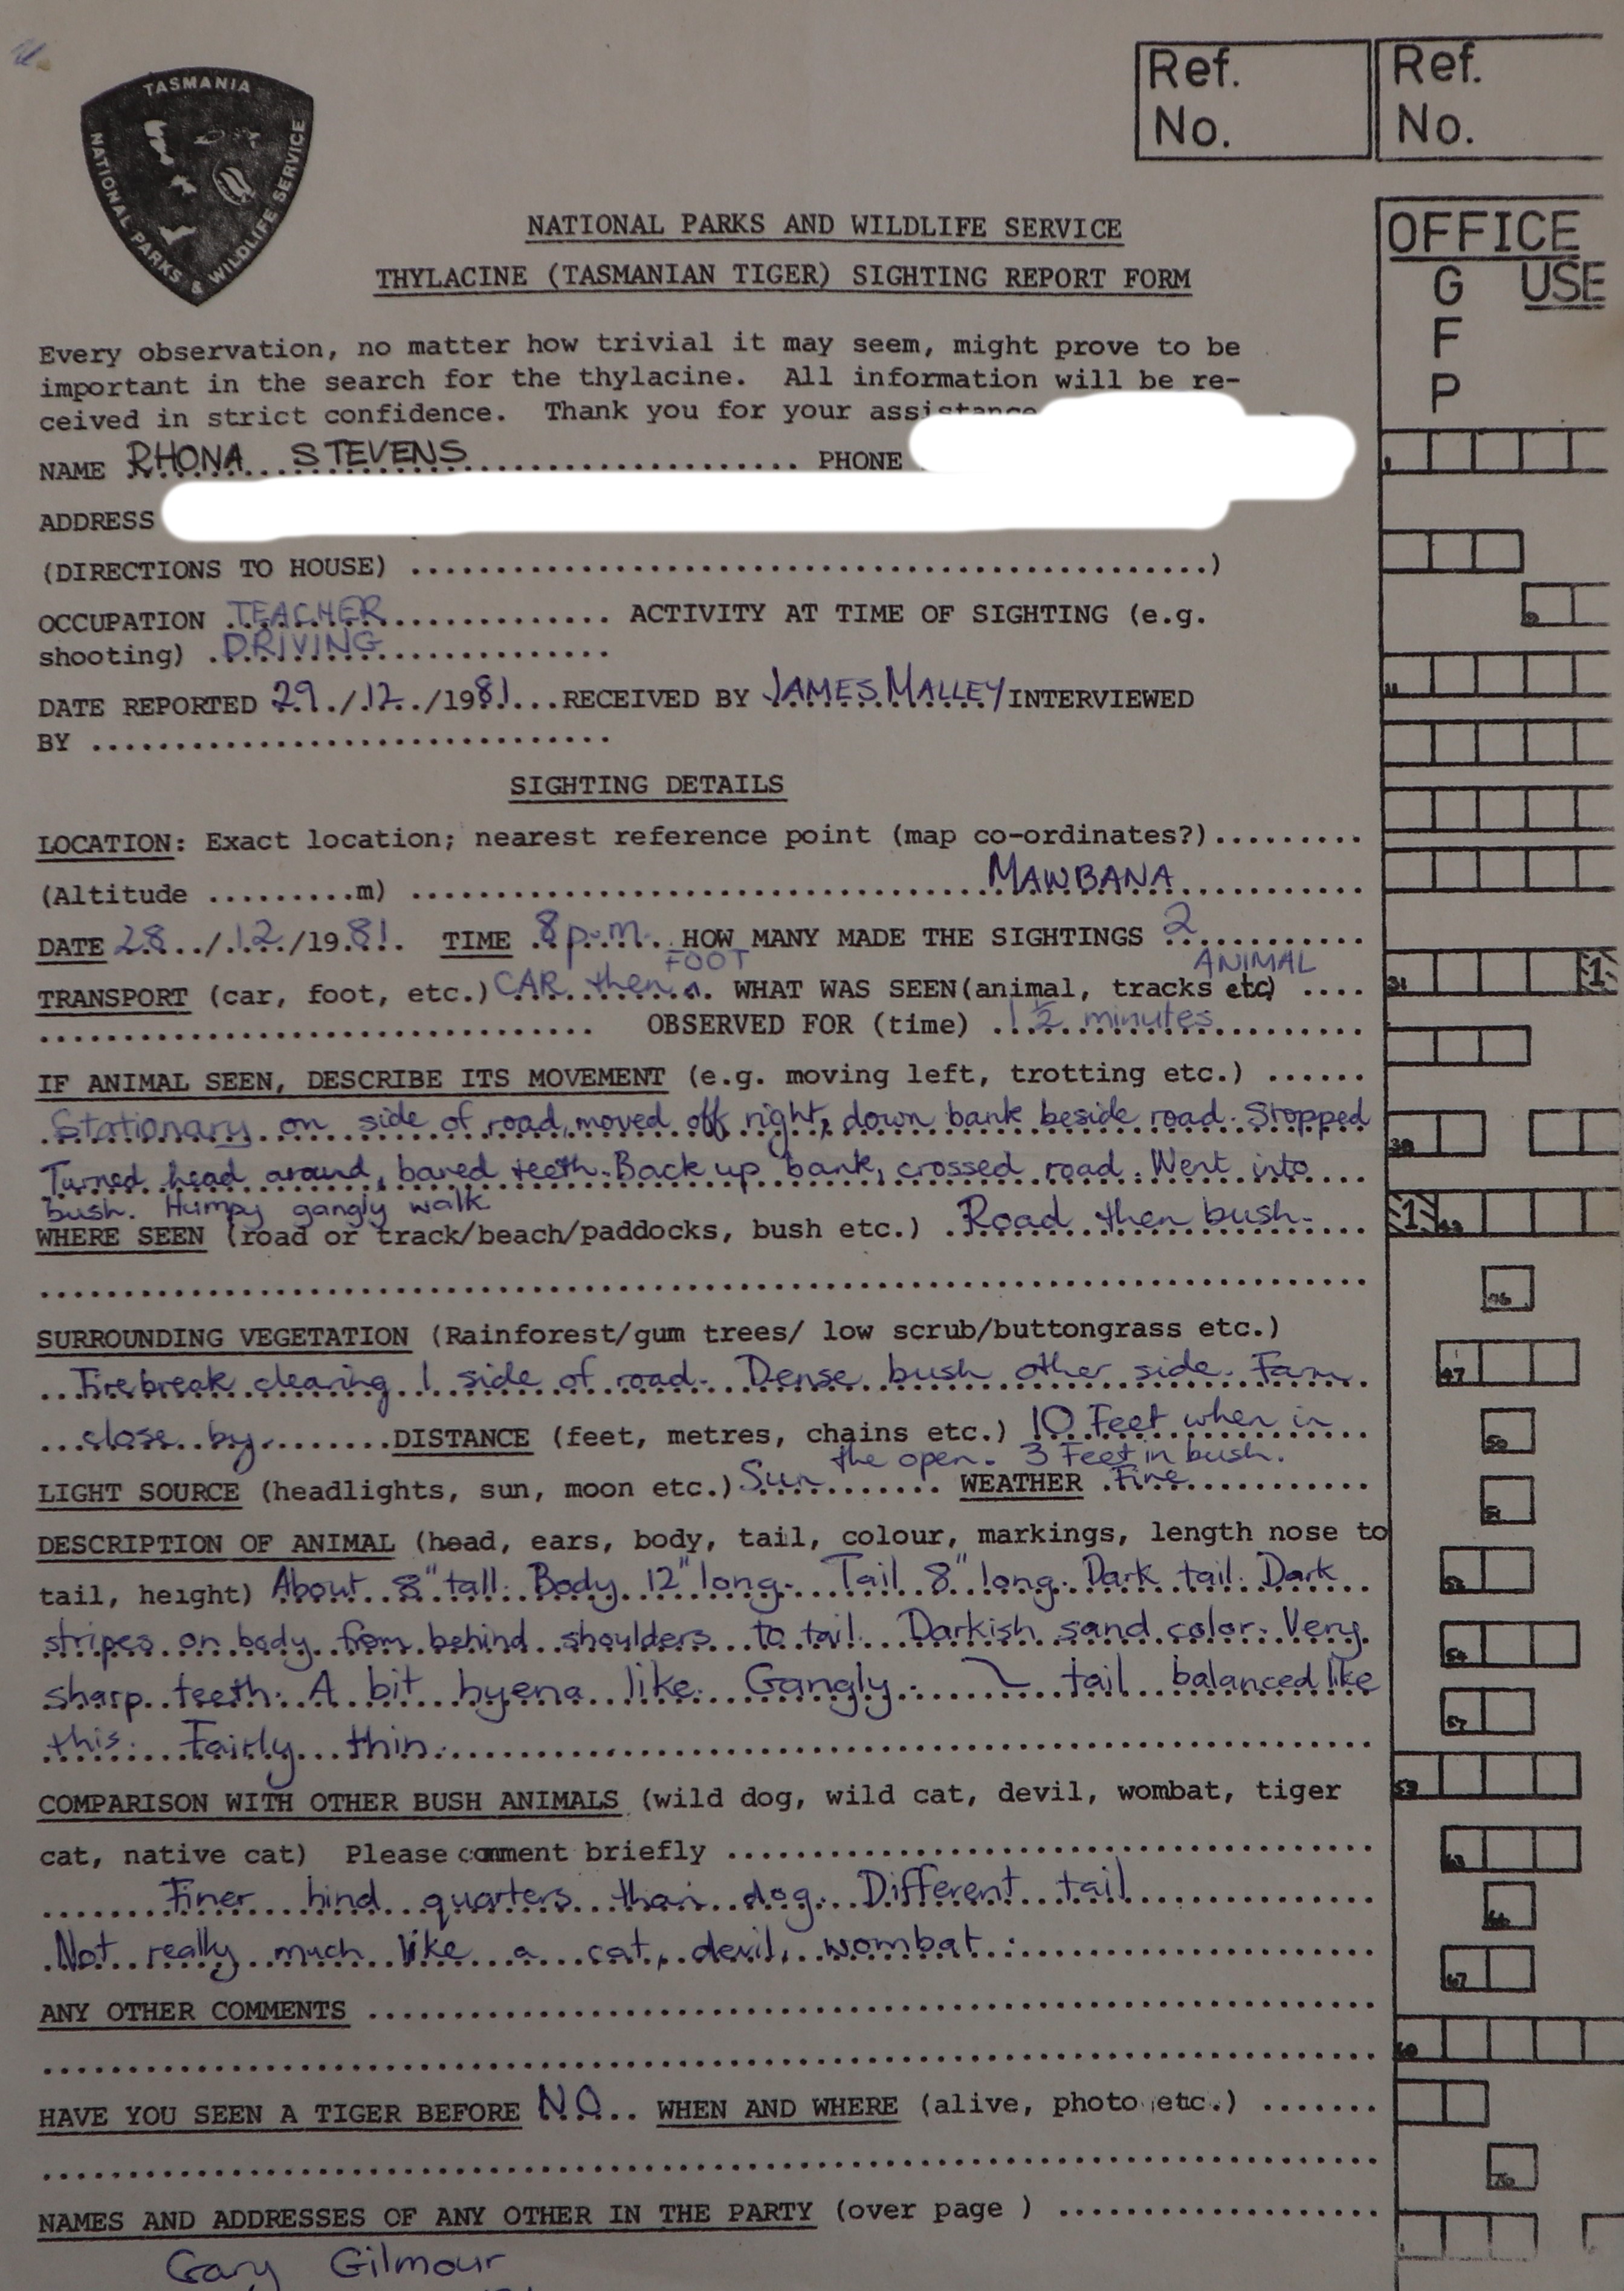 TASMANIA
NATIONAL PARKS & WILDLIFE SERVICE
Ref. No.
Ref. No.
OFFICE USE
G
F
P
NATIONAL PARKS AND WILDLIFE SERVICE
THYLACINE (TASMANIAN TIGER) SIGHTING REPORT FORM
Every observation, no matter how trivial it may seem, might prove to be
important in the search for the thylacine. All information will be re-
ceived in strict confidence. Thank you for your assistance
NAME RHONA STEVENS PHONE
ADDRESS
(DIRECTIONS TO HOUSE) ........................................)
OCCUPATION TEACHER ACTIVITY AT TIME OF SIGHTING (e.g.
shooting) DRIVING
DATE REPORTED 29/12/1981...RECEIVED BY JAMES MALLEY INTERVIEWED
BY ..............................
SIGHTING DETAILS
LOCATION: Exact location; nearest reference point (map co-ordinates?).........
(Altitude .........m) MAWBANA
DATE 28/12/1981. TIME 8 p.m. HOW MANY MADE THE SIGHTINGS 2
TRANSPORT (car, foot, etc.) CAR then FOOT. WHAT WAS SEEN (animal, tracks etc) ANIMAL
OBSERVED FOR (time) 1½ minutes
IF ANIMAL SEEN, DESCRIBE ITS MOVEMENT (e.g. moving left, trotting etc.) ......
Stationary on side of road, moved off right, down bank beside road. Stopped
Turned head around, bared teeth. Back up bank, crossed road. Went into
bush. Humpy gangly walk
WHERE SEEN (road or track/beach/paddocks, bush etc.) Road then bush.
SURROUNDING VEGETATION (Rainforest/gum trees/ low scrub/buttongrass etc.)
Firebreak clearing 1 side of road. Dense bush other side. Farm
close by DISTANCE (feet, metres, chains etc.) 10 Feet when in
the open. 3 Feet in bush.
LIGHT SOURCE (headlights, sun, moon etc.) Sun WEATHER Fine
DESCRIPTION OF ANIMAL (head, ears, body, tail, colour, markings, length nose to
tail, height) About 8" tall. Body 12" long. Tail 8" long. Dark tail. Dark
stripes on body from behind shoulders to tail. Darkish sand color. Very
sharp teeth. A bit hyena like. Gangly. tail balanced like
this. Fairly thin.
COMPARISON WITH OTHER BUSH ANIMALS (wild dog, wild cat, devil, wombat, tiger
cat, native cat) Please comment briefly ..............................
Finer hind quarters than dog. Different tail
Not really much like a cat, devil, wombat.
ANY OTHER COMMENTS ..............................
HAVE YOU SEEN A TIGER BEFORE NO.. WHEN AND WHERE (alive, photo etc.) .......
NAMES AND ADDRESSES OF ANY OTHER IN THE PARTY (over page ) ..............
Gary Gilmour